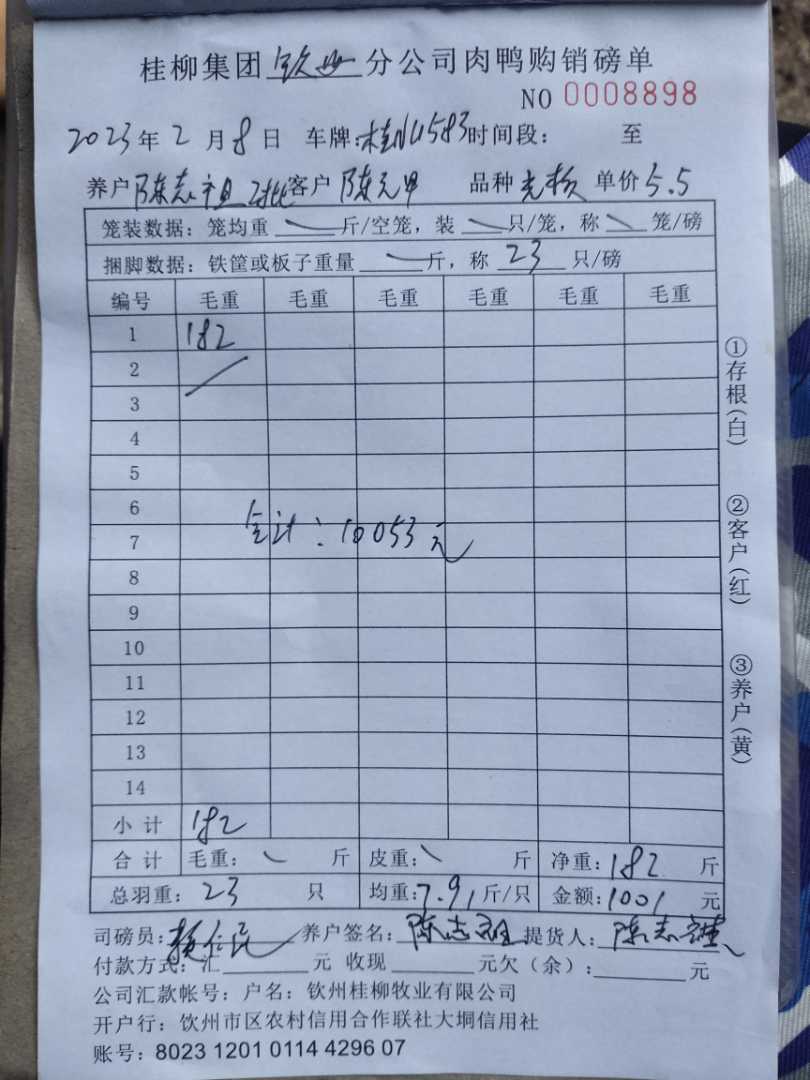 桂柳集团钦州分公司肉鸭购销磅单
NO 0008898
2023年2月8日 车牌:桂NU583时间段: 至
养户陈志祖 客户陈元甲 品种 单价5.5
笼装数据: 笼均重 斤/空笼, 装 只/笼, 称 笼/磅
捆脚数据: 铁筐或板子重量 斤, 称 23 只/磅
编号 毛重 毛重 毛重 毛重 毛重 毛重
1 182
2
3
4
5
6
合计:10053元
7
8
9
10
11
12
13
14
小计 182
合计 毛重: 斤 皮重: 斤 净重:182 斤
总羽重: 23 只 均重:7.91斤/只 金额:1001 元
司磅员: 养户签名:陈志 提货人:陈志
付款方式: 汇 元 收现 元欠(余): 元
公司汇款帐号: 户名: 钦州桂柳牧业有限公司
开户行: 饮州市区农村信用合作联社大垌信用社
账号: 8023 1201 0114 4296 07
①存根(白) ②客户(红) ③养户(黄)